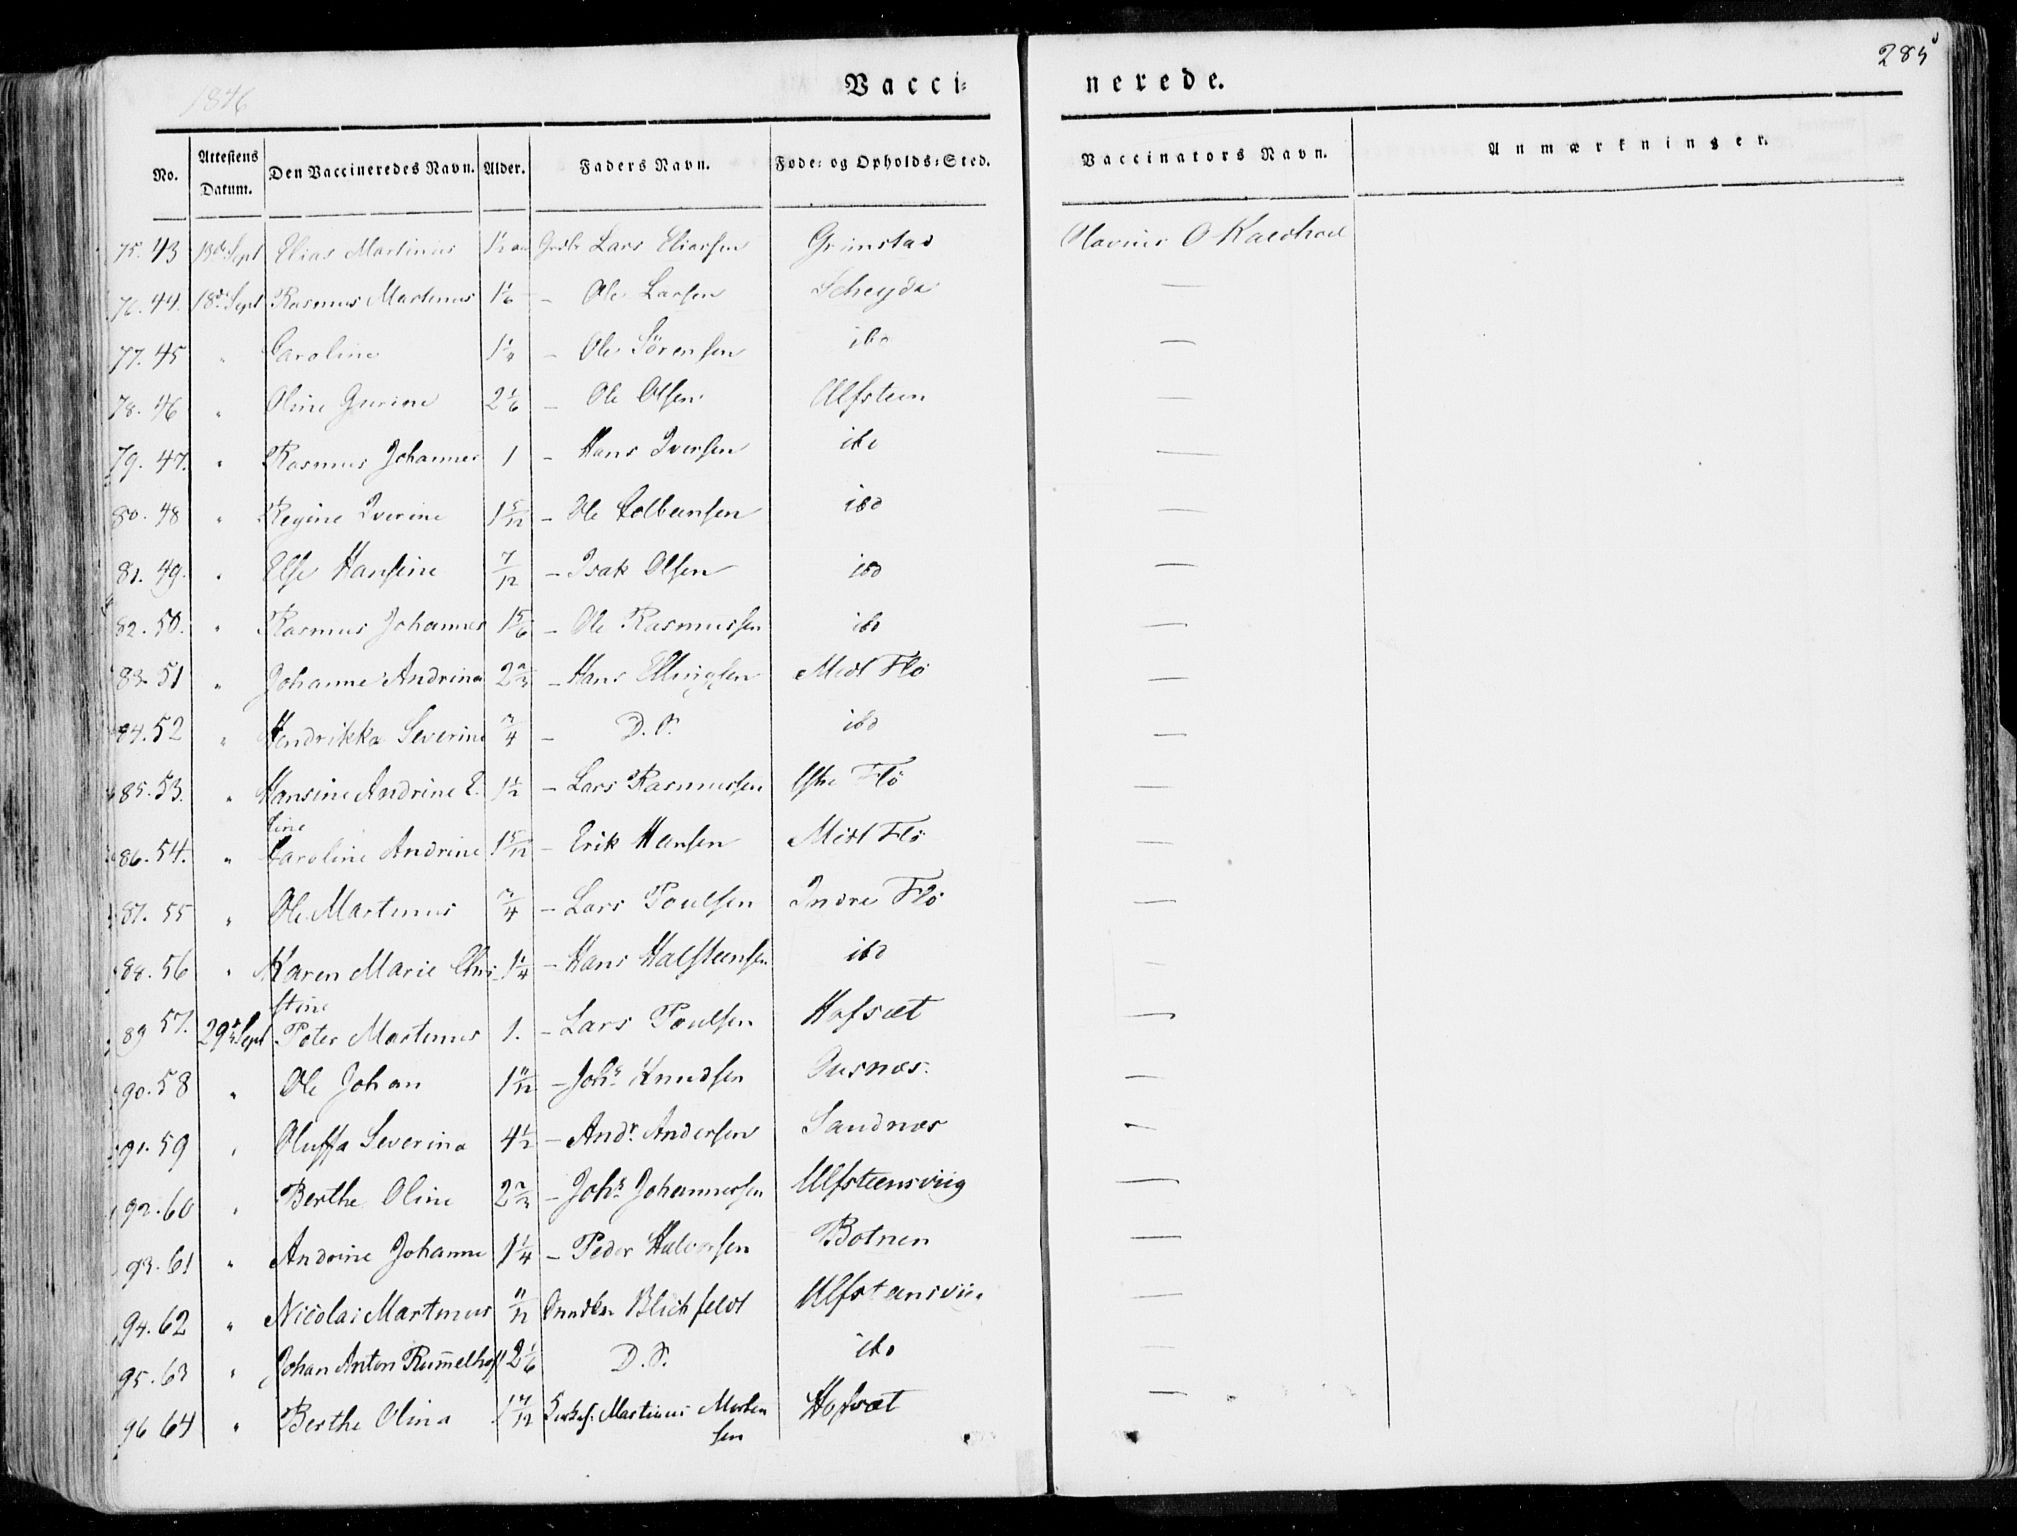 1846
285
Vacci= nerede.
No. Attestens Datum. Den Vaccineredes Navn. Alder. Faders Navn. Føde= og Opholds=Sted. Vaccinators Navn. Anmærkninger.
75. 43 13de Sept Elias Martinus 1½ Lars Eliassen Grimstad
76. 44. 18de Sept Rasmus Martinus 1 1/6 – Ole Larsen —
77. 45 " Caroline – Ole Sörensen ibd —
78. 46 " Oline Gurine 2 1/6 – Ole Olsen Ulfsteen —
79. 47. " Rasmus Johannes 1 – Hans Iversen ibd —
80. 48 " Regine Iverine 1 5/12 – Ole ibd —
81. 49. " Else Hansine 7/12 – Isak Olsen ibd —
82. 50. " Rasmus Johannes 1 5/6 – Ole Rasmussen ibd —
83. 51 " Johanne Andrina 2 2/3 – Hans Ellingsen Midt Flö —
84. 52 " Hendrikka Severine 3/4 – D. S. ibd —
85. 53. " Hansine Andrine E. 1½ – Lars Rasmussen Flö —
line
86. 54. " Caroline Andrine 1 5/12 – Erik Hansen Midt Flö —
87. 55 " Ole Martinus 3/4 – Lars Poulsen Indre Flö —
88. 56 " Karen Marie Chri 1 1/4 – Hans Halsteensen ibd —
stine
89 57. 29de Sept Peter Martinus 1. – Lars Poulsen Hofsæt —
90. 58 " Ole Johan 1 11/12 – Johs Knudsen —
91. 59 " Oluffa Severina 4½ – Andr. Andersen Sandnæs —
92. 60 " Berthe Oline 2 2/3 – Johs Johannessen Ulfsteensviig —
93. 61 " Andrine Johanne 1 1/4 – Peder Halvorsen Botnen —
94. 62 " Nicolai Martinus 11/12 Blichfeldt Ulfsteensviig —
95. 63 " Johan Anton Rum̄elhoff 2 1/6 D. S. ibd —
96 64 " Berthe Olina Martinus Morten Hofsæt —
sen